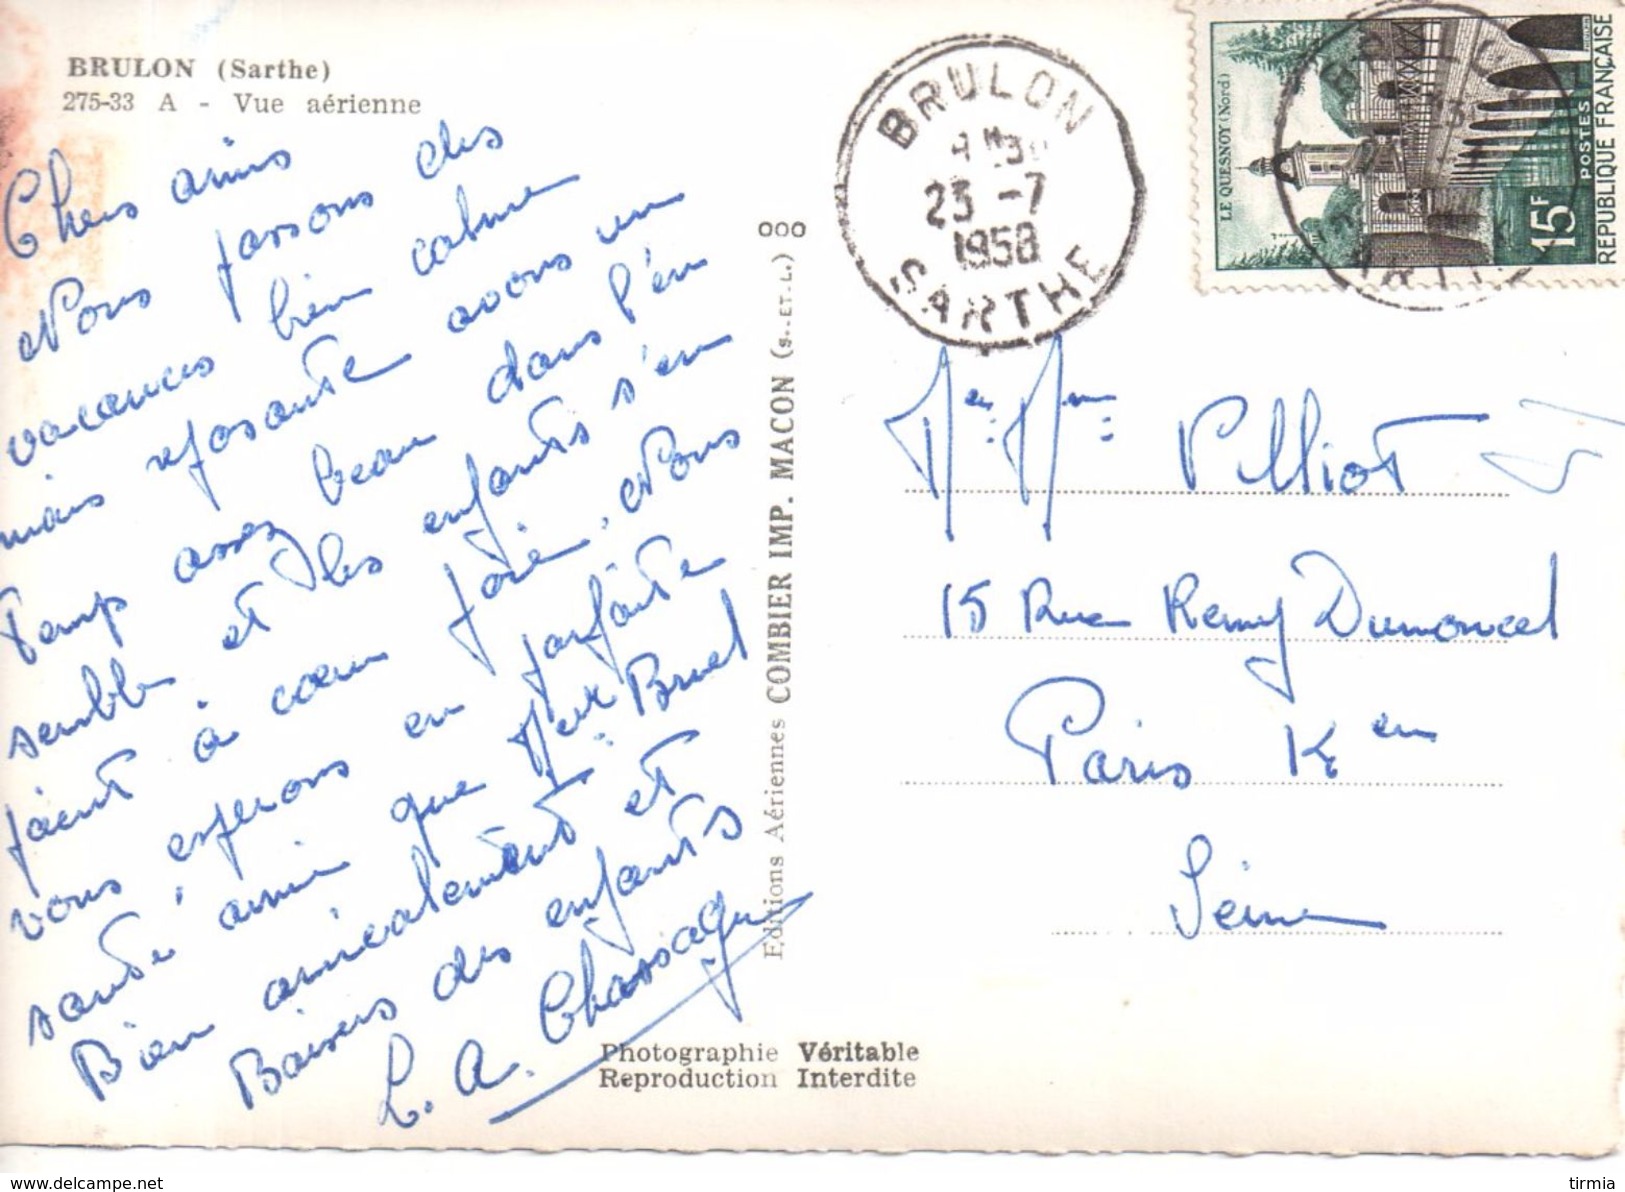 BRULON (Sarthe)
275-33 A - Vue aérienne
Chers amis
Nous passons des
vacances bien calme
mais reposante avons un
temp assez beau dans l'en
semble et les enfants s'en
joient à cœur joie, Nous
vous esperons en parfaite
santé, ainsi que Mell Bruel
Bien amicalement et
Baisers des enfants
L. A. Chassagne
ooo
Editions Aériennes COMBIER IMP. MACON (S.-ET-L.)
Photographie Véritable
Reproduction Interdite
BRULON
23 -7
1958
SARTHE
LE QUESNOY (Nord)
15F
POSTES
REPUBLIQUE FRANÇAISE
Pelliot
15 Rue Remy Dumoncel
Paris
Seine
www.delcampe.net
tirmia